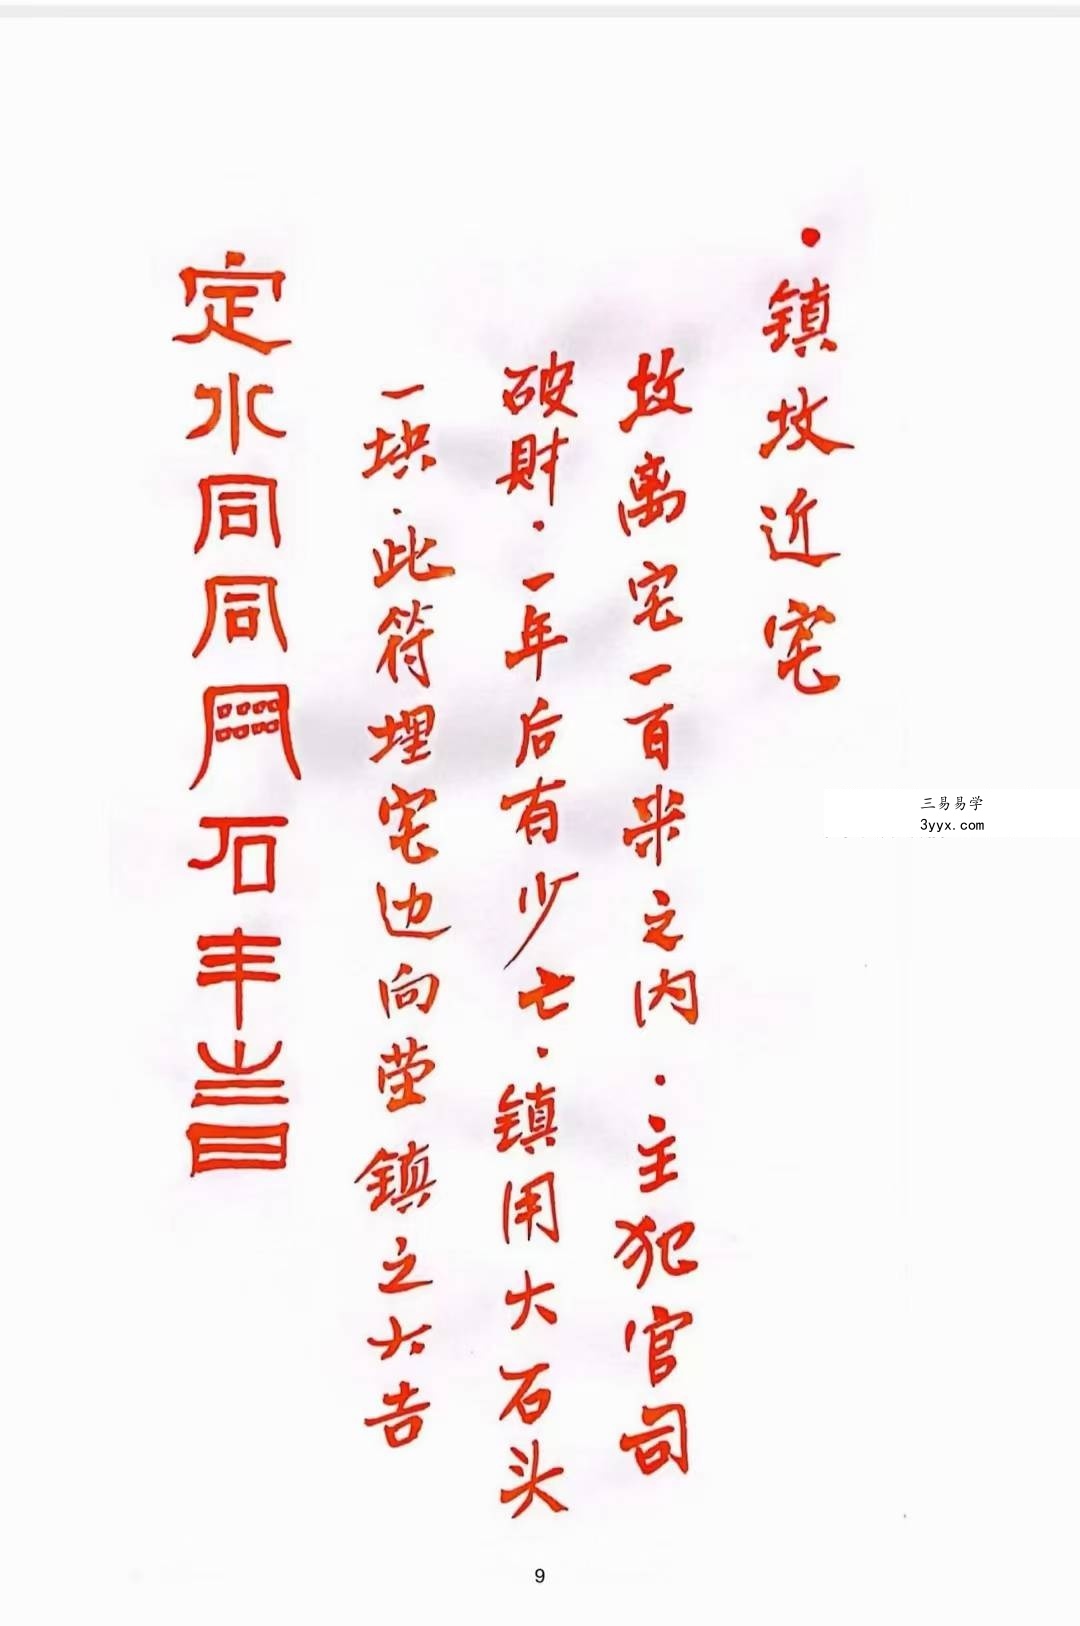 ·镇坟近宅
坟离宅一百米之内·主犯官司
破财·一年后有少亡·镇用大石头
一块·此符埋宅边向茔镇之大吉
定水同同石丰
三易易学
3yyx.com
9